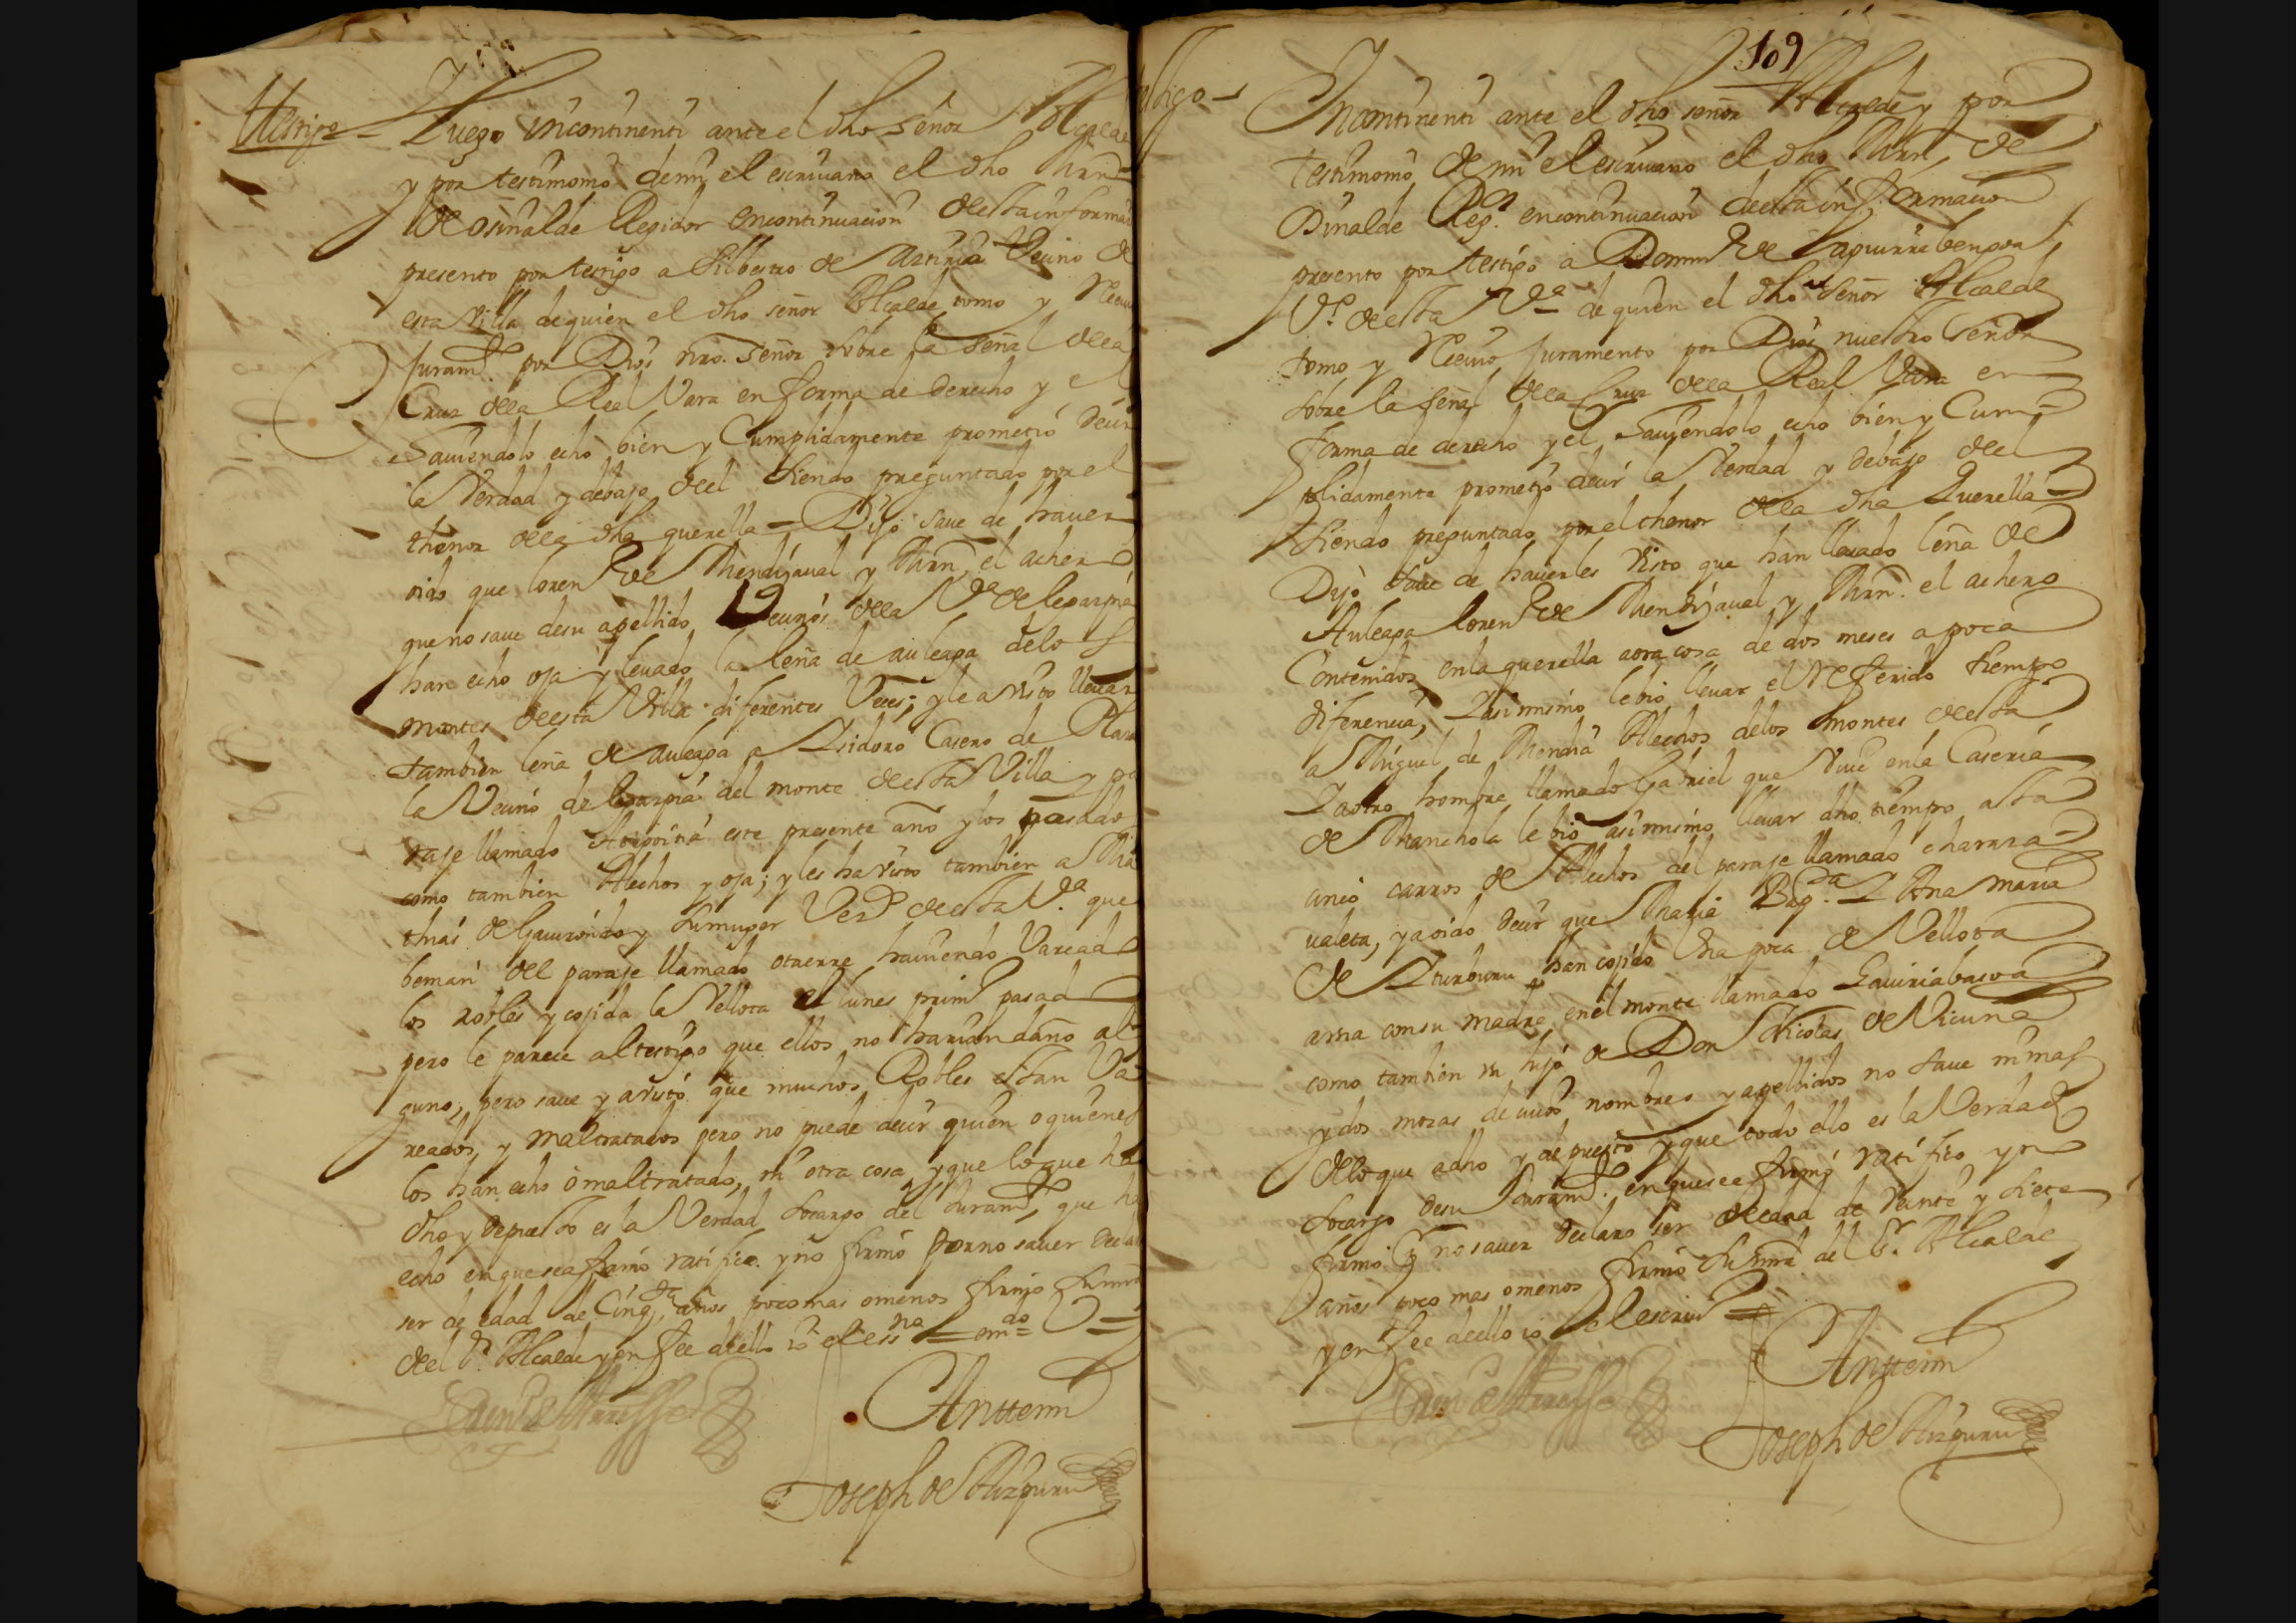 Testigo =
Luego incontinenti ante el dho señor Alcalde
y por testimonio de mi el escriuano el dho Mrn =
de osinalde Regidor en continuacion desta informaz
presento por testigo a Silbestro de Veçino de
esta villa de quien el dho señor Alcalde tomo y Reciuio
Juramto. por Dios nro. señor sobre la señal dela
Cruz dela Real Vara en forma de derecho y el
hauiendolo echo bien y Cumplidamente prometió decir
la Verdad y debajo del siendo preguntado por el
thenor dela dha querella = Dijo saue de hauer
oido que loren de Mendizaual y Mrn el achero
que no saue de su apellido Veçinos dela Va. de legazpia
han echo oja y lleuado la leña de auleaga delos
montes desta Villa diferentes Veces; y le a visto lleuar
tambien leña de auleaga a Isidoro Casero de Plaza
la Vecino de legazpia del monte desta Villa y pa
raje llamado este presente año y los pasados
como tambien Alechos y oja; y les ha visto tambien a Ma
thias de Gauirondo y su muger Vezos. desta Va. que
benian del paraje llamado otaerre hauiendo Varcado
los robles y cojida la Vellota el lunes primo. pasado
pero le parece al testigo que ellos no harian daño al
guno, pero saue y a visto que muchos Robles estan Va
reados, y maltratados pero no puede decir quien o quienes
los han echo o maltratado, ni otra cosa, y que lo que ha
dho y depuesto es la Verdad so cargo del Juramto. que ha
echo en que se afirmó ratificó y no firmó por no sauer declaró
ser de edad de Cinqta. años poco mas o menos firmó su mrd
del Sr. Alcalde y en fee dello yo el essno =
Anttemi
Joseph de Aizpuru
109
testigo =
Incontinenti ante el dho señor Alcalde y por
testimonio de mi el escriuano el dho Mrn, de
Osinalde Regor. en continuacion desta informacion
presento por testigo a Domin de Eaguirrebengoa
Vo. desta Va. de quien el dho señor Alcalde
tomo y Reciuio Juramento por Dios nuestro señor
sobre la señal dela Cruz dela Real Vara en
forma de derecho y el hauiendolo echo bien y Cum =
plidamente prometió decir la Verdad y debajo del
siendo preguntado por el thenor dela dha Querella =
Dijo saue de hauerles visto que han lleuado leña de
Auleaga loren de Mendizaual y Mrn. el achero
Contenidos en la querella aora cosa de dos meses a poca
diferencia, Y asimismo le bio lleuar el Referido tiempo
a Miguel de Mendia Alechos delos montes desta
Y a otro hombre llamado Gabriel que Viue en la Caseria
de Manchola le bio asimismo lleuar dho tiempo asta
cinco carros de Alechos del paraje llamado charana =
ualeta, y a oido decir que Maria Brigda. Y Ana Maria
de Iturburu han cojido Vna poca de Vellota
con su madre en el monte llamado Gauiriabasoa
como tambien vn hijo de Don Nicolas de Vicuña
y dos mozas de cuios nombres y apellidos no saue ni mas
de lo que a dho y depuesto y que todo ello es la Verdad
so cargo de su Juramto. en que se afirmó ratificó y no
firmó por no sauer declaro ser de edad de Veinte y siete
años poco mas o menos firmó su mrd del Sr. Alcalde
y en fee dello yo el escriuo =
Anttemi
Joseph de Aizpuru